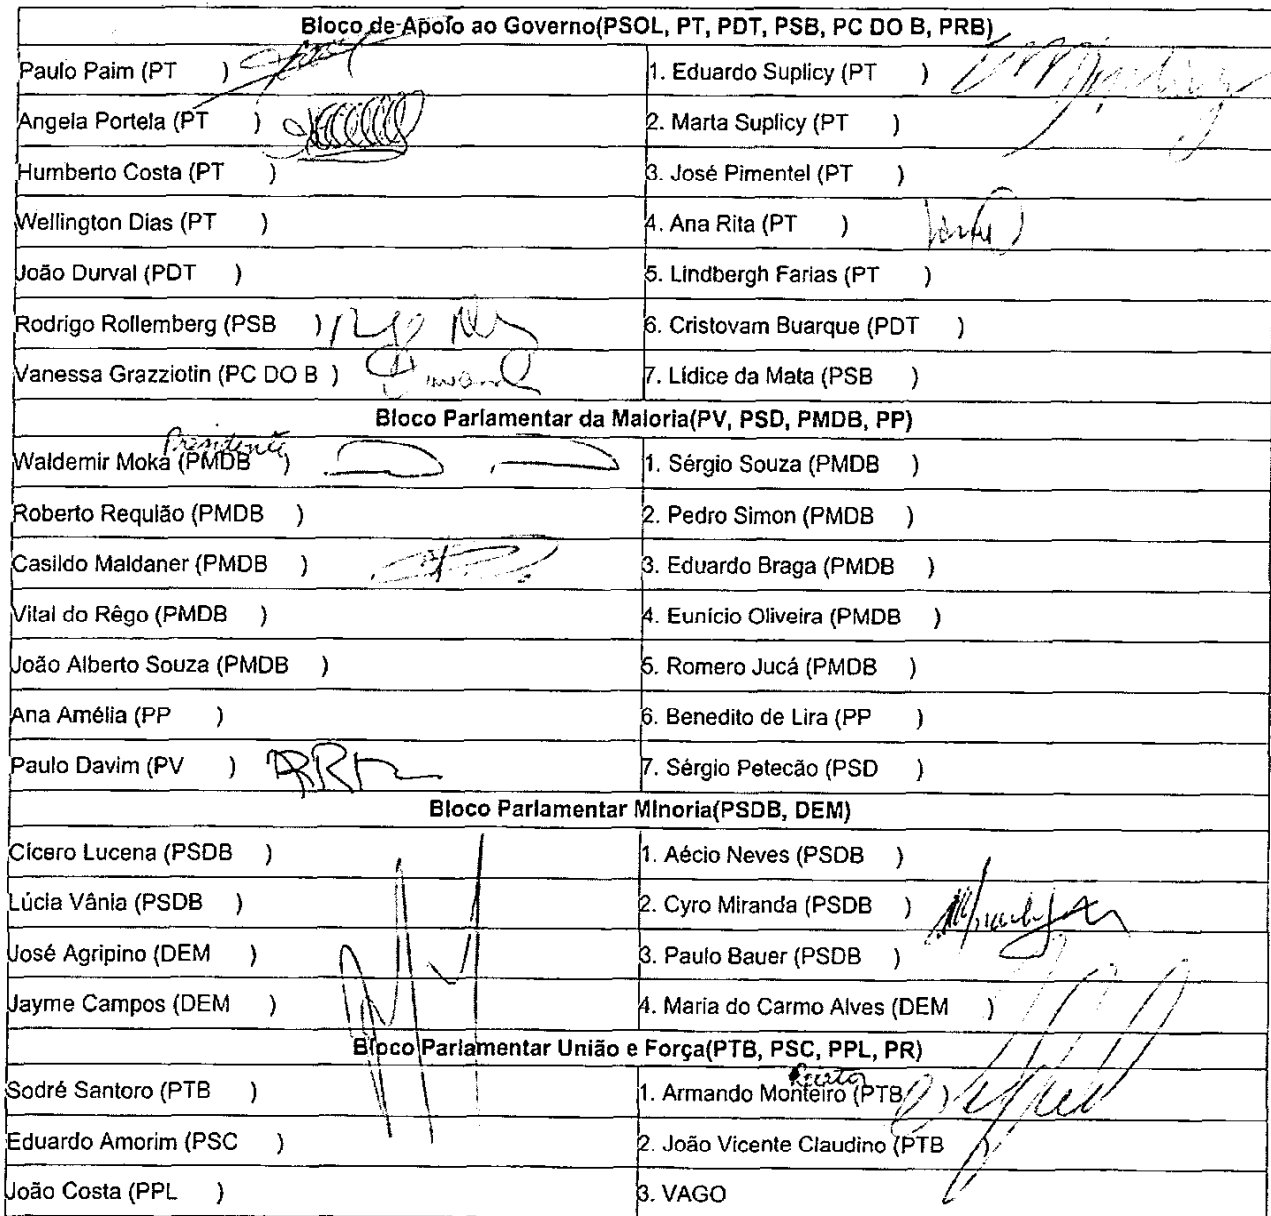 Bloco de Apoio ao Governo(PSOL, PT, PDT, PSB, PC DO B, PRB)
Paulo Paim (PT )
1. Eduardo Suplicy (PT )
Angela Portela (PT )
2. Marta Suplicy (PT )
Humberto Costa (PT )
3. José Pimentel (PT )
Wellington Dias (PT )
4. Ana Rita (PT )
João Durval (PDT )
5. Lindbergh Farias (PT )
Rodrigo Rollemberg (PSB )
6. Cristovam Buarque (PDT )
Vanessa Grazziotin (PC DO B )
7. Lídice da Mata (PSB )
Bloco Parlamentar da Maioria(PV, PSD, PMDB, PP)
Presidente
Waldemir Moka (PMDB )
1. Sérgio Souza (PMDB )
Roberto Requião (PMDB )
2. Pedro Simon (PMDB )
Casildo Maldaner (PMDB )
3. Eduardo Braga (PMDB )
Vital do Rêgo (PMDB )
4. Eunício Oliveira (PMDB )
João Alberto Souza (PMDB )
5. Romero Jucá (PMDB )
Ana Amélia (PP )
6. Benedito de Lira (PP )
Paulo Davim (PV )
7. Sérgio Petecão (PSD )
Bloco Parlamentar Minoria(PSDB, DEM)
Cícero Lucena (PSDB )
1. Aécio Neves (PSDB )
Lúcia Vânia (PSDB )
2. Cyro Miranda (PSDB )
José Agripino (DEM )
3. Paulo Bauer (PSDB )
Jayme Campos (DEM )
4. Maria do Carmo Alves (DEM )
Bloco Parlamentar União e Força(PTB, PSC, PPL, PR)
Sodré Santoro (PTB )
1. Armando Monteiro (PTB )
Eduardo Amorim (PSC )
2. João Vicente Claudino (PTB )
João Costa (PPL )
3. VAGO